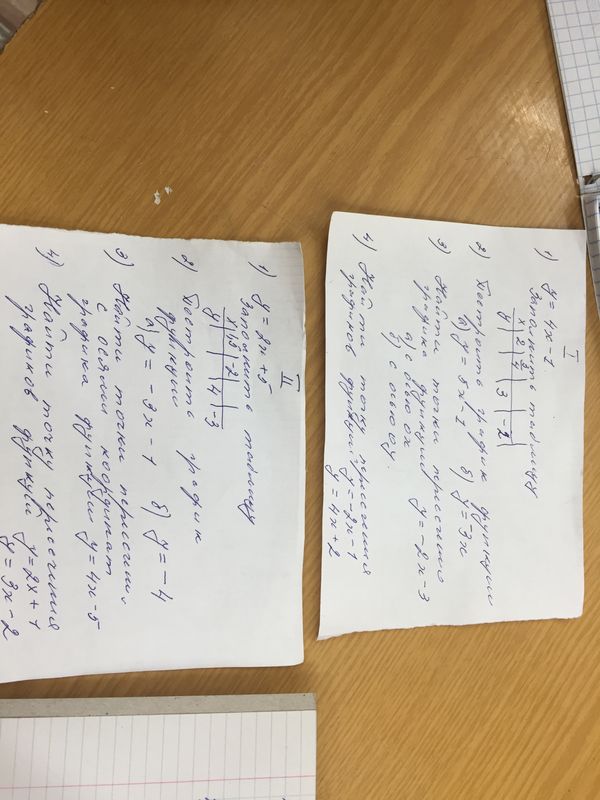 I
1) y = 4x - 1
заполнить таблицу
x | 2 | | 3 | -2 |
y
2) Построить график функции
а) y = 3x - 1 б) y = -3x
3) Найти точки пересечения
графика функции y = -2x - 3
а) с осью ox
б) с осью oy.
4) Найти точку пересечения
графиков функций y = -2x - 1
y = 4x + 2
II
1) y = 2x + 5
заполнить таблицу
x | | -2 | |
y | | | 4 | -3
2) Построить график
функции
а) y = -3x - 1 б) y = -4
3) Найти точки пересечен.
с осями координат
графика функции y = 4x - 5
4) Найти точку пересечения
графиков функций y = 2x + 1
y = 3x - 2